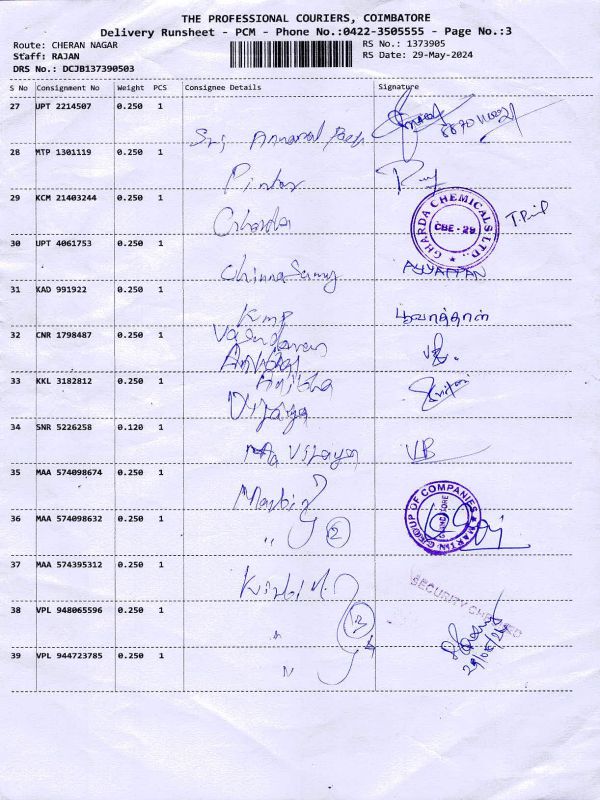 THE PROFESSIONAL COURIERS, COIMBATORE
Delivery Runsheet - PCM - Phone No.:0422-3505555 - Page No.:3
Route: CHERAN NAGAR
RS No.: 1373905
Staff: RAJAN
RS Date: 29-May-2024
DRS No.: DCJB137390503
S No Consignment No Weight PCS Consignee Details Signature
27 UPT 2214507 0.250 1
28 MTP 1301119 0.250 1
29 KCM 21403244 0.250 1
Gharda
GHARDA CHEMICALS LTD.,
CBE - 29
30 UPT 4061753 0.250 1
ChinnaSamy
AYYAPPAN
31 KAD 991922 0.250 1
KMP
பூவாத்தாள்
32 CNR 1798487 0.250 1
33 KKL 3182812 0.250 1
Vijaya
34 SNR 5226258 0.120 1
Vijaya
VB
35 MAA 574098674 0.250 1
Martin
MARTIN GROUP OF COMPANIES
COIMBATORE
36 MAA 574098632 0.250 1
" 2
37 MAA 574395312 0.250 1
SECURITY CHECKED
38 VPL 948065596 0.250 1
" 3
39 VPL 944723785 0.250 1
"
29/05/24